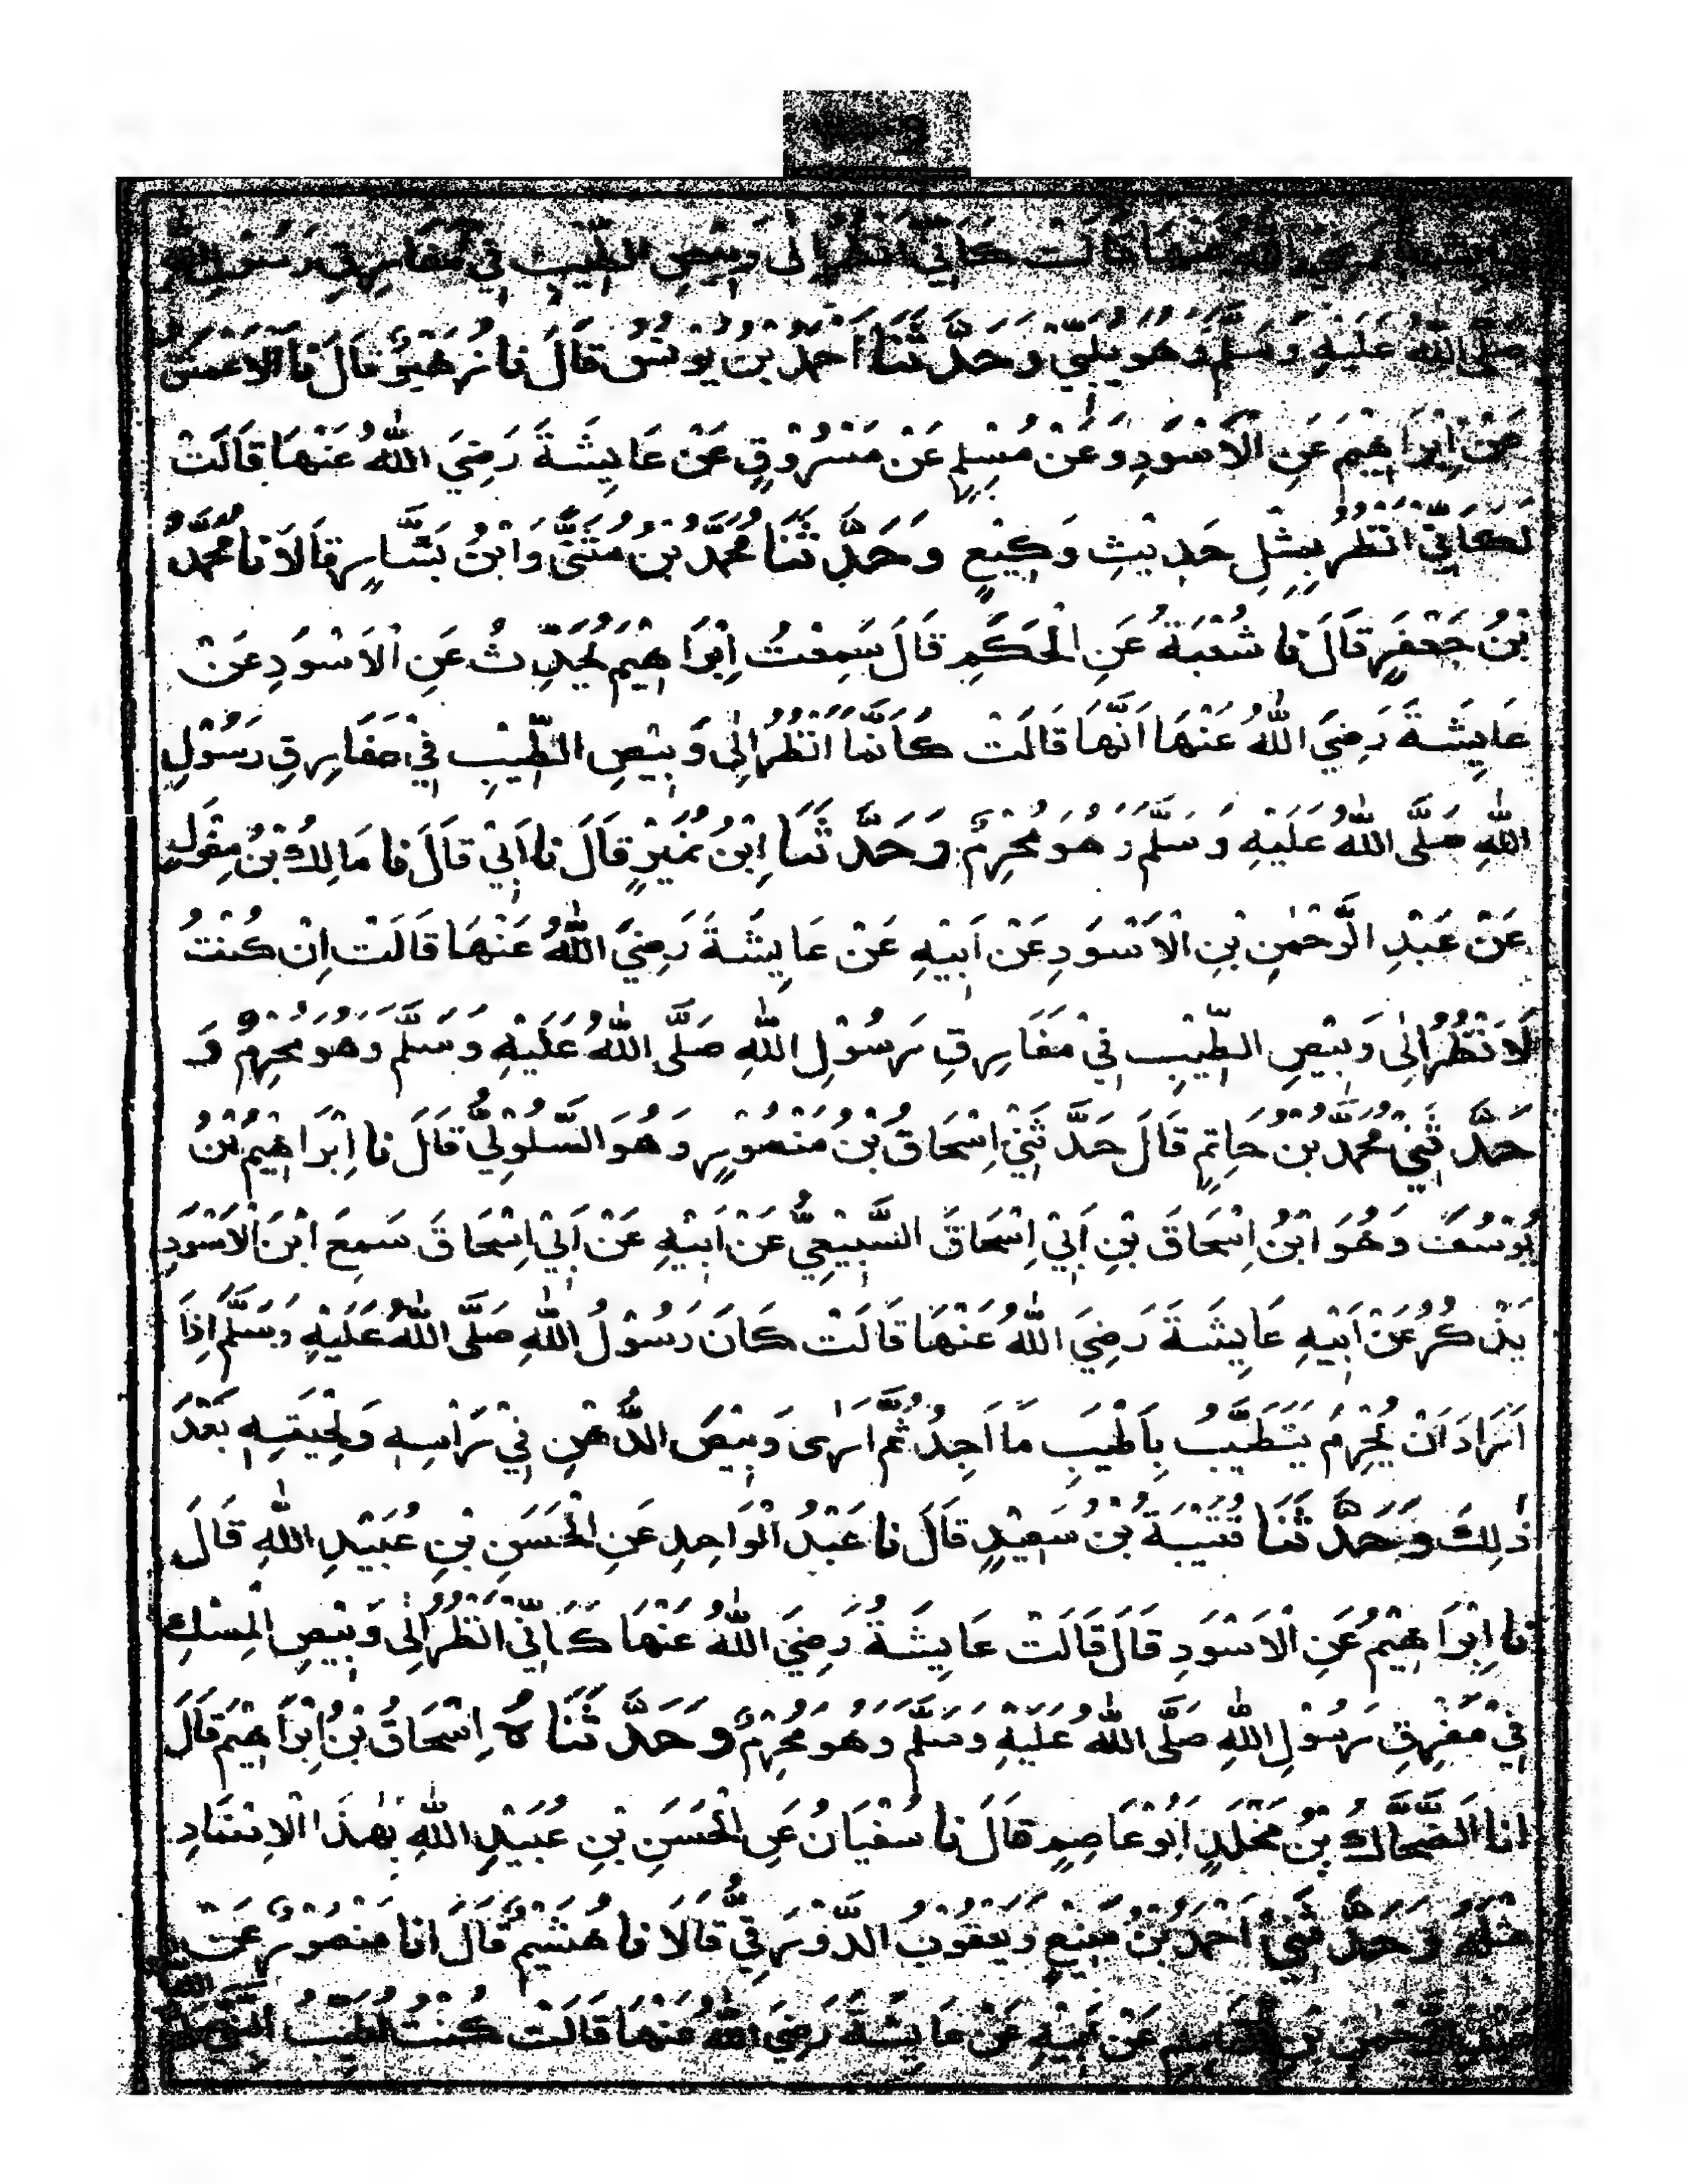 عَايِشَةَ رَضِيَ اللّٰهُ عَنْهَا قَالَتْ كَاَنِّيْ اَنْظُرُ اِلٰى وَبِيْصِ الطِّيْبِ فِيْ مَفَارِقِ رَسُوْلِ اللّٰهِ
صَلَّى اللّٰهُ عَلَيْهِ وَسَلَّمَ وَهُوَ يُلَبِّيْ وَحَدَّثَنَا اَحْمَدُ بْنُ يُوْنُسَ قَالَ نَا زُهَيْرٌ قَالَ نَا الْاَعْمَشُ
عَنْ اِبْرَاهِيْمَ عَنِ الْاَسْوَدِ وَعَنْ مُسْلِمٍ عَنْ مَسْرُوْقٍ عَنْ عَايِشَةَ رَضِيَ اللّٰهُ عَنْهَا قَالَتْ
لَكَاَنِّيْ اَنْظُرُ بِمِثْلِ حَدِيْثِ وَكِيْعٍ وَحَدَّثَنَا مُحَمَّدُ بْنُ مُثَنًّى وَابْنُ بَشَّارٍ قَالَا نَا مُحَمَّدُ
بْنُ جَعْفَرٍ قَالَ نَا شُعْبَةُ عَنِ الْحَكَمِ قَالَ سَمِعْتُ اِبْرَاهِيْمَ يُحَدِّثُ عَنِ الْاَسْوَدِ عَنْ
عَايِشَةَ رَضِيَ اللّٰهُ عَنْهَا اَنَّهَا قَالَتْ كَاَنَّمَا اَنْظُرُ اِلٰى وَبِيْصِ الطِّيْبِ فِيْ مَفَارِقِ رَسُوْلِ
اللّٰهِ صَلَّى اللّٰهُ عَلَيْهِ وَسَلَّمَ وَهُوَ مُحْرِمٌ وَحَدَّثَنَا اِبْنُ نُمَيْرٍ قَالَ نَا اَبِيْ قَالَ نَا مَالِكُ بْنُ مِغْوَلٍ
عَنْ عَبْدِ الرَّحْمٰنِ بْنِ الْاَسْوَدِ عَنْ اَبِيْهِ عَنْ عَايِشَةَ رَضِيَ اللّٰهُ عَنْهَا قَالَتْ اِنْ كُنْتُ
لَاَنْظُرُ اِلٰى وَبِيْصِ الطِّيْبِ فِيْ مَفَارِقِ رَسُوْلِ اللّٰهِ صَلَّى اللّٰهُ عَلَيْهِ وَسَلَّمَ وَهُوَ مُحْرِمٌ وَ
حَدَّثَنِيْ مُحَمَّدُ بْنُ حَاتِمٍ قَالَ حَدَّثَنِيْ اِسْحَاقُ بْنُ مَنْصُوْرٍ وَهُوَ السَّلُوْلِيُّ قَالَ نَا اِبْرَاهِيْمُ بْنُ
يُوْسُفَ وَهُوَ ابْنُ اِسْحَاقَ بْنِ اَبِيْ اِسْحَاقَ السَّبِيْعِيُّ عَنْ اَبِيْهِ عَنْ اَبِيْ اِسْحَاقَ سَمِعَ ابْنَ الْاَسْوَدِ
يَذْكُرُ عَنْ اَبِيْهِ عَايِشَةَ رَضِيَ اللّٰهُ عَنْهَا قَالَتْ كَانَ رَسُوْلُ اللّٰهِ صَلَّى اللّٰهُ عَلَيْهِ وَسَلَّمَ اِذَا
اَرَادَ اَنْ يُحْرِمَ يَتَطَيَّبُ بِاَطْيَبِ مَا اَجِدُ ثُمَّ اَرٰى وَبِيْصَ الدُّهْنِ فِيْ رَاْسِهٖ وَلِحْيَتِهٖ بَعْدَ
ذٰلِكَ وَحَدَّثَنَا قُتَيْبَةُ بْنُ سَعِيْدٍ قَالَ نَا عَبْدُ الْوَاحِدِ عَنِ الْحَسَنِ بْنِ عُبَيْدِ اللّٰهِ قَالَ
نَا اِبْرَاهِيْمُ عَنِ الْاَسْوَدِ قَالَ قَالَتْ عَايِشَةُ رَضِيَ اللّٰهُ عَنْهَا كَاَنِّيْ اَنْظُرُ اِلٰى وَبِيْصِ الْمِسْكِ
فِيْ مَفْرِقِ رَسُوْلِ اللّٰهِ صَلَّى اللّٰهُ عَلَيْهِ وَسَلَّمَ وَهُوَ مُحْرِمٌ وَحَدَّثَنَاهُ اِسْحَاقُ بْنُ اِبْرَاهِيْمَ قَالَ
اَنَا الضَّحَّاكُ بْنُ مَخْلَدٍ اَبُوْ عَاصِمٍ قَالَ نَا سُفْيَانُ عَنِ الْحَسَنِ بْنِ عُبَيْدِ اللّٰهِ بِهٰذَا الْاِسْنَادِ
مِثْلَهُ وَحَدَّثَنِيْ اَحْمَدُ بْنُ مَنِيْعٍ وَيَعْقُوْبُ الدَّوْرَقِيُّ قَالَا نَا هُشَيْمٌ قَالَ اَنَا مَنْصُوْرٌ عَنْ
عَبْدِ الرَّحْمٰنِ بْنِ الْقَاسِمِ عَنْ اَبِيْهِ عَنْ عَايِشَةَ رَضِيَ اللّٰهُ عَنْهَا قَالَتْ كُنْتُ اُطَيِّبُ النَّبِيَّ